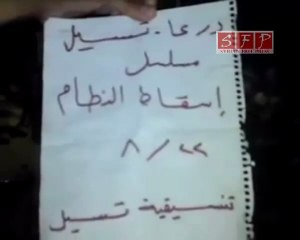 درعا - تسيل
مسلسل
إسقاط النظام
٨ / ٢٢
تنسيقية تسيل
SFP